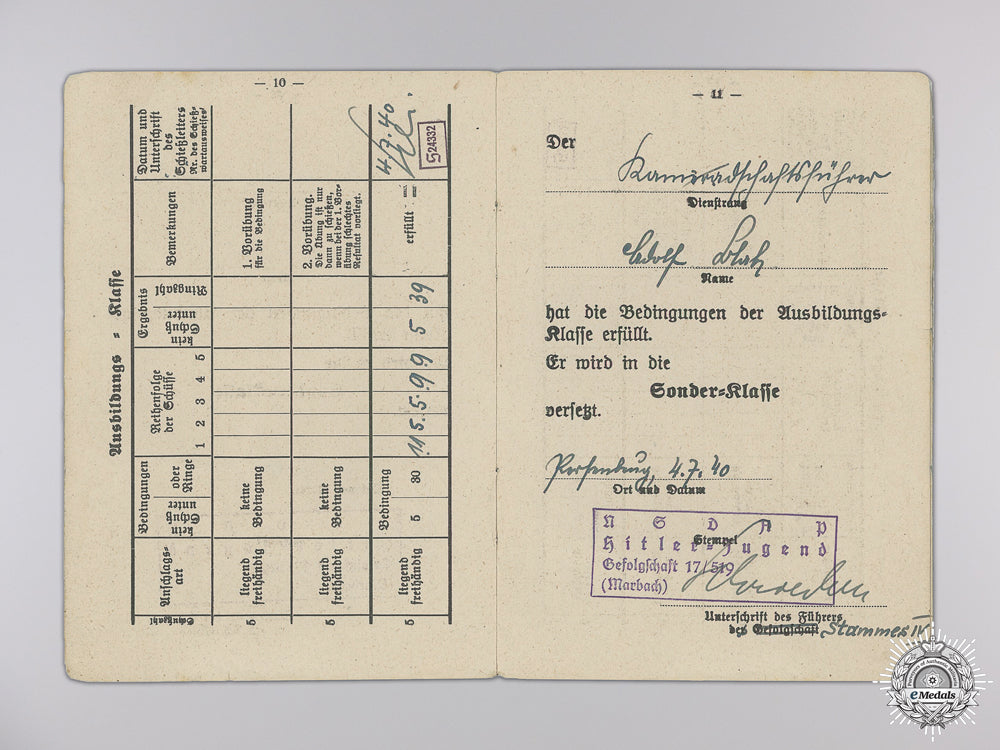 — 10 —
Ausbildungs - Klasse
Schußzahl
Anschlags-
art
Bedingungen
kein
Schuß
unter
oder
Ringe
Reihenfolge
der Schüsse
1 2 3 4 5
Ergebnis
kein
Schuß
unter
Ringzahl
Bemerkungen
Datum und
Unterschrift
des
Schießleiters
Nr. des Schieß-
wartausweises
5
liegend
freihändig
keine
Bedingung
1. Vorübung
für die Bedingung
5
liegend
freihändig
keine
Bedingung
2. Vorübung.
Die Übung ist nur
dann zu schießen,
wenn bei der 1. Vor-
übung schlechtes
Resultat vorliegt.
5
liegend
freihändig
Bedingung
5 30
11 5. 5. 9 9
5 39
erfüllt:
4/7.40
HJ 24332
— 11 —
Der
Kameradschaftsführer
Dienstrang
Adolf
Name
hat die Bedingungen der Ausbildungs-
Klasse erfüllt.
Er wird in die
Sonder-Klasse
versetzt.
Persenbeug, 4.7.40
Ort und Datum
NSDAP
Stempel
Hitler-Jugend
Gefolgschaft 17/519
(Marbach)
Unterschrift des Führers
des Gefolgschaft Stammes IV
Purveyors of Authentic Militaria
eMedals